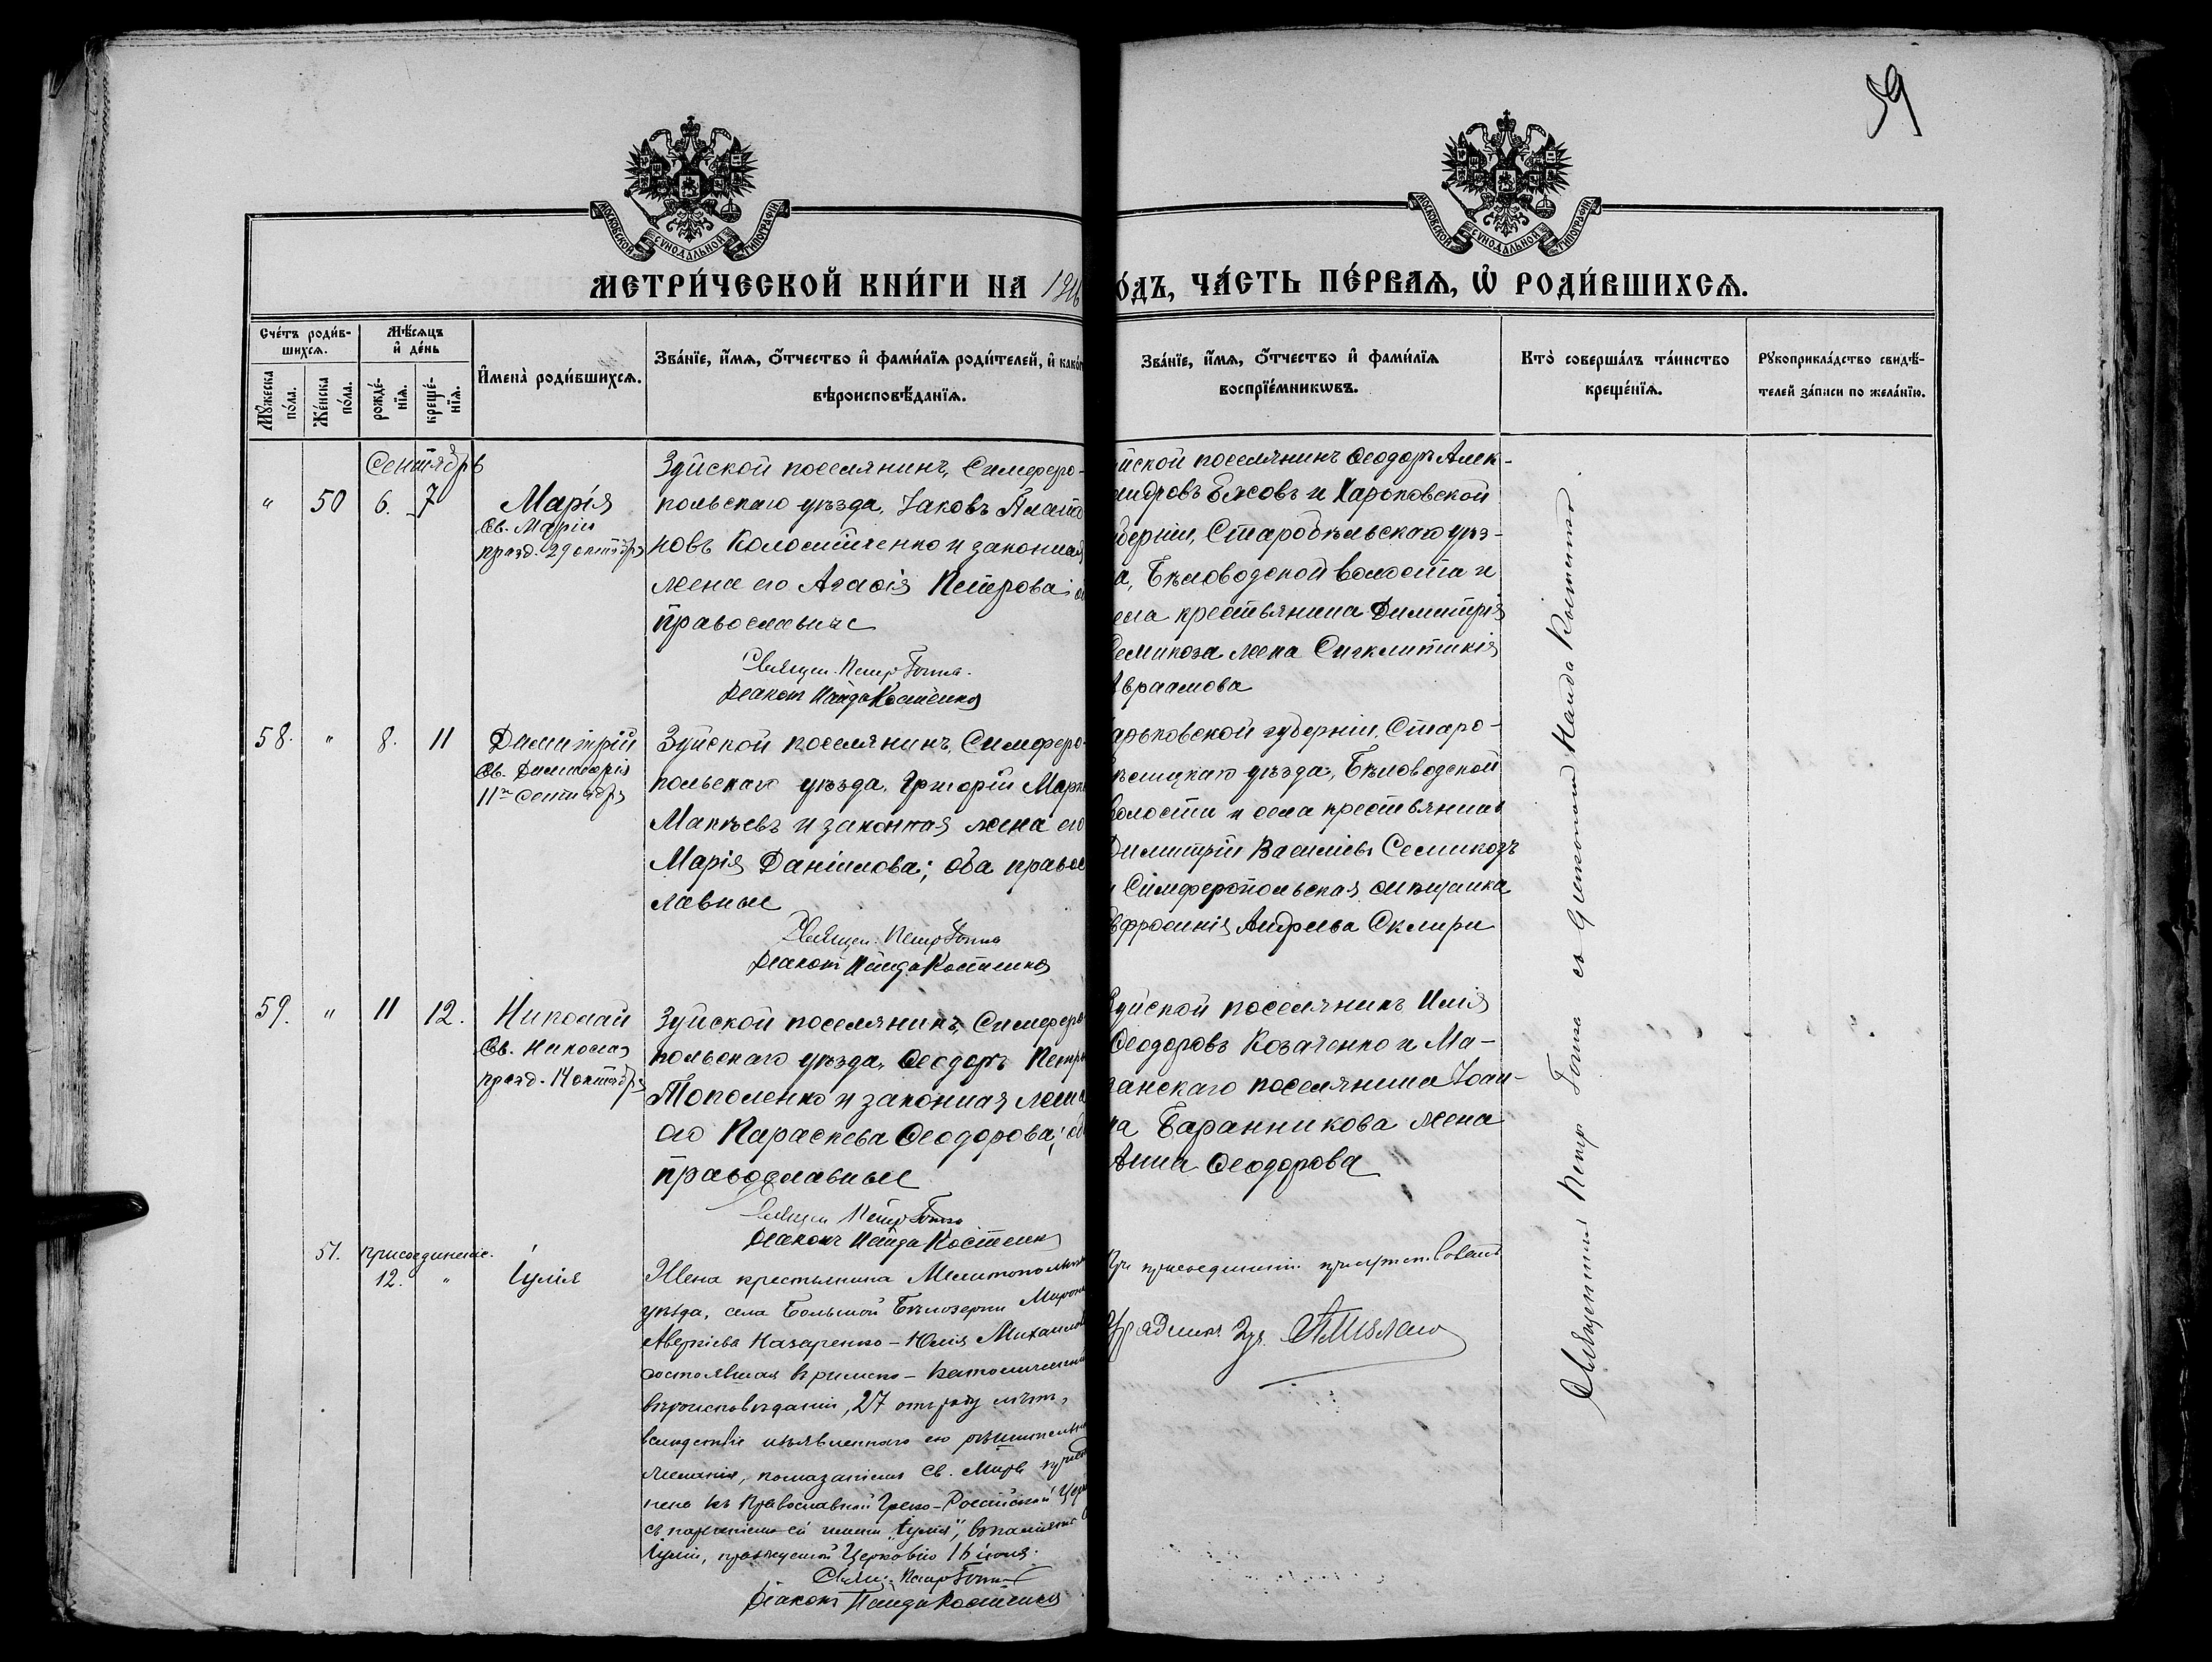 59
МОСКОВСКОЙ СѴНОДАЛЬНОЙ ТИПОГРАФІИ
МОСКОВСКОЙ СѴНОДАЛЬНОЙ ТИПОГРАФІИ
МЕТРИ́ЧЕСКОЙ КНИ́ГИ НА
О́ДЪ, ЧА́СТЬ ПЕ́РВАѦ, Ѡ҆ РОДИ́ВШИХСѦ.
Сче́тъ роди́в-
шихсѧ.
Мѣ́сѧцъ
и҆ де́нь
Мꙋ́жеска
по́ла.
Же́нска
по́ла.
рожде́-
нїѧ.
креще́-
нїѧ.
И҆мена̀ роди́вшихсѧ.
Зва́нїе, и҆́мѧ, ѻ҆́тчество и҆ фами́лїѧ роди́телей, и҆ како́
вѣроисповѣ́данїѧ.
Зва́нїе, и҆́мѧ, ѻ҆́тчество и҆ фами́лїѧ
воспрїе́мникѡвъ.
Кто̀ соверша́лъ та́инство
креще́нїѧ.
Рꙋкоприкла́дство свидѣ́-
телей за́писи по жела́нїю.
Сентябрь
" 50 6. 7 Марія
Св. Маріи
празд. 29 октября
Зуйской поселянинъ, Симферо-
польскаго уѣзда, Іаковъ
новъ Коломійченко и законная
жена его Агаѳія Петрова;
православные
Священ. Петръ
Діаконъ Найда Костенко
йской поселянинъ Ѳеодоръ Алек-
андровъ Бясовъ и Харьковской
берніи, Старобѣльскаго уѣз-
а, Бѣловодской волости и
ела крестьянина Димитрія
Семикоза жена Сигклитикія
Авраамова
58. " 8. 11 Димитрій
Св. Димитрія
11го сентября
Зуйской поселянинъ, Симферо-
польскаго уѣзда, Григорій
Макѣевъ и законная жена его
Марія Даніилова; оба правос
лавные
Священ. Петръ
Діаконъ Найда Костенко
арьковской губерніи, Старо-
уѣзда, Бѣловодской
волости и села крестьянинъ
Димитрій Васильевъ Семикозъ
и Симферопольская мѣщанка
Евфросинія Андреева Склири
59. " 11 12. Николай
Св. Николая
празд. 14 октября
Зуйской поселянинъ, Симферо
польскаго уѣзда, Ѳеодоръ Петро
Тополенко и законная жена
его Параскева Ѳеодорова;
православные
Священ Петръ
Діаконъ Найда Костенко
Зуйской поселянинъ Илія
Ѳеодоровъ Козаченко и Ма-
занскаго поселянина Іоан-
на Баранникова жена
Анна Ѳеодорова
51. присоединеніе.
12. " Іулія
Жена крестьянина Мелитопольска
уѣзда, села Большой Бѣлозерки Мирона
Аверкіева Назаренко - Юлія Михаилов
состоявшая въ римско-католическомъ
вѣроисповѣданіи, 27 отъ роду лѣтъ,
вслѣдствіе изъявленнаго ею рѣшительна
желанія, помазаніемъ Св. Мира присое
нена къ Православной Греко-Россійской Цер
съ нареченіемъ ей имени "Іулія", въ память
Іуліи, празднуемой Церковію 16 іюля.
Свящ. Петръ
Діаконъ Найда Костенко
При присоединеніи
Священникъ Петръ съ діакономъ Найда Костенко.